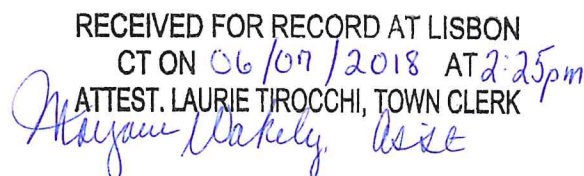 RECEIVED FOR RECORD AT LISBON
CT ON 06/07/2018 AT 2:25pm
ATTEST. LAURIE TIROCCHI, TOWN CLERK
Maryann Wakely, Asst